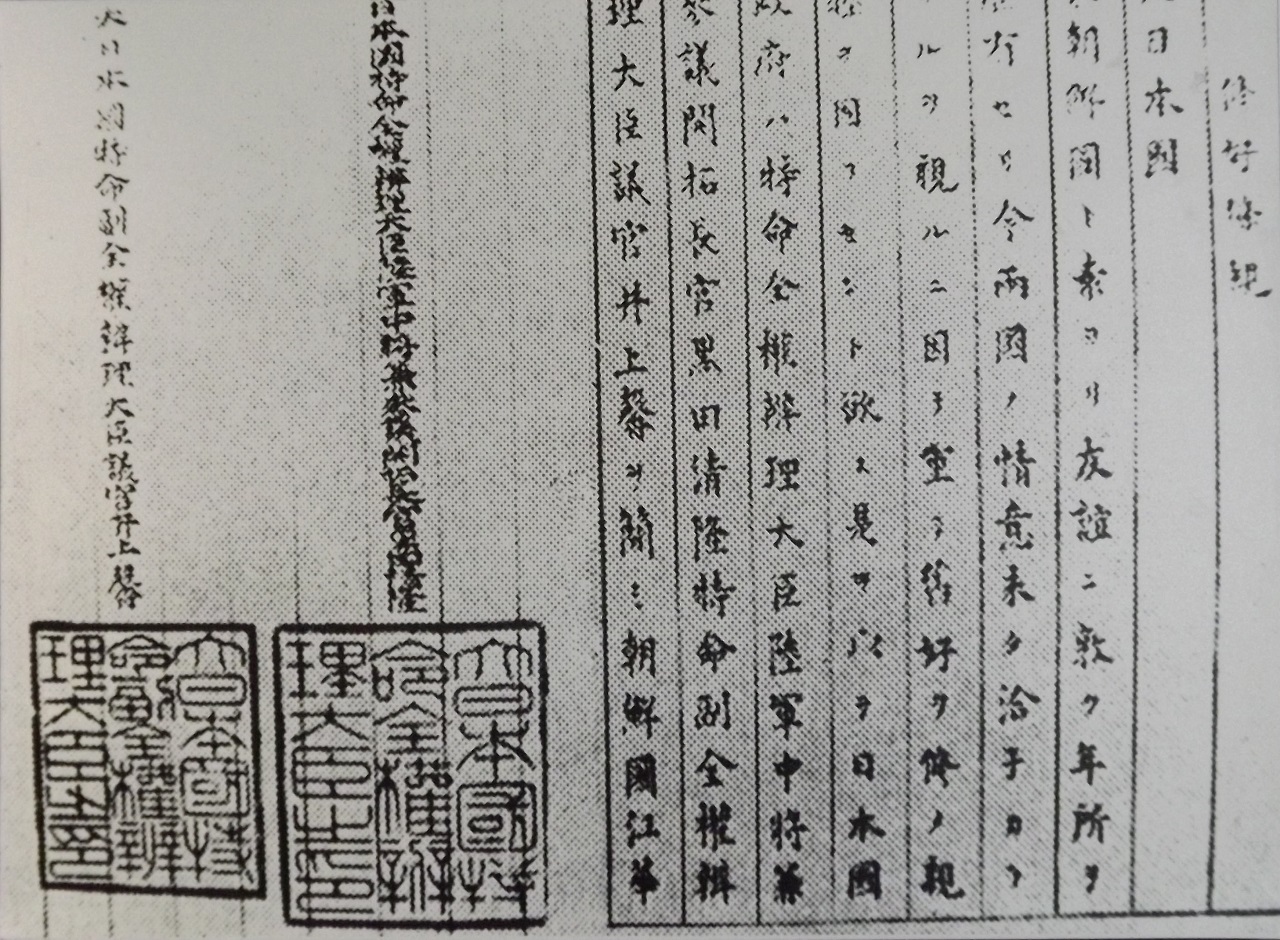 修好條規
日本國
朝鮮國ト素ヨリ友誼ニ敦ク年所ヲ
有セリ今兩國ノ情意未タ洽子カラ
ルヲ視ルニ因テ重テ舊好ヲ修メ親
睦ヲ固フセント欲ス是ヲ以テ日本國
政府ハ特命全權辨理大臣陸軍中將兼
參議開拓長官黑田清隆特命副全權辨
理大臣議官井上馨ヲ簡ミ朝鮮國江華
日本國特命全權辨理大臣陸軍中將兼參議開拓長官黑田清隆
大日本國特命全權辨理大臣之印
大日本國特命副全權辨理大臣議官井上馨
大日本國特命副全權辨理大臣之印